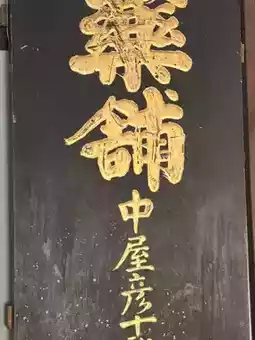 薬舗
中屋彦十